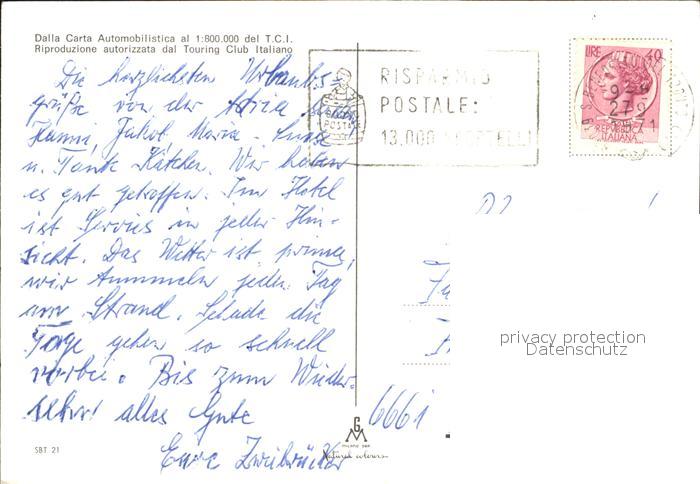 Dalla Carta Automobilistica al 1:800.000 del T.C.I.
Riproduzione autorizzata dal Touring Club Italiano
Die herzlichsten Urlaubs-
grüße von der Adria senden
Hanni, Jakob, Maria
u. Tante Kätchen. Wir haben
es gut getroffen. Im Hotel
ist Service in jeder Hin-
sicht. Das Wetter ist prima,
wir tummeln jeden Tag
am Strand. Schade die
Tage gehen so schnell
vorbei. Bis zum Wieder-
sehn! alles Gute
Eure Zweibrücker
SBT 21
RISPARMIO
POSTALE:
13.000
LIRE 40
REPUBBLICA
ITALIANA
6661
privacy protection
Datenschutz
GM
Natural colours